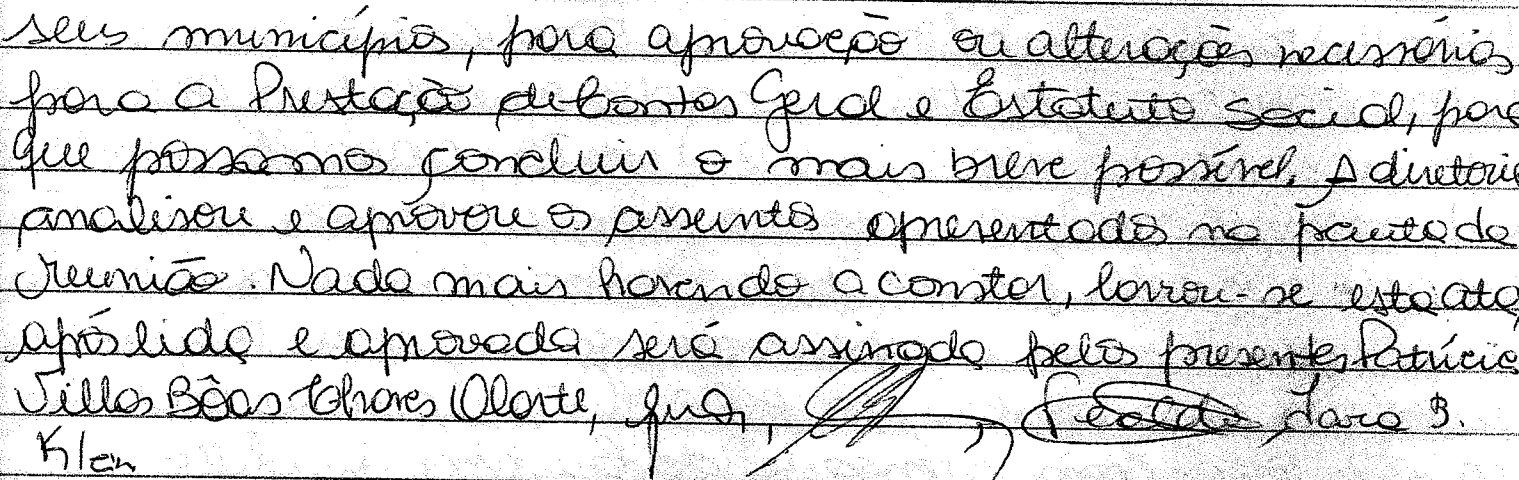 seus municípios, para aprovação ou alterações necessárias
para a Prestação de Contas Geral e Estatuto Social, para
que possamos concluir o mais breve possível. A diretoria
analisou e aprovou os assuntos apresentados na pauta da
reunião. Nada mais havendo a constar, lavrou-se esta ata,
após lida e aprovada será assinada pelos presentes, Patrícia
Villas Bôas
Iara B.
Klein